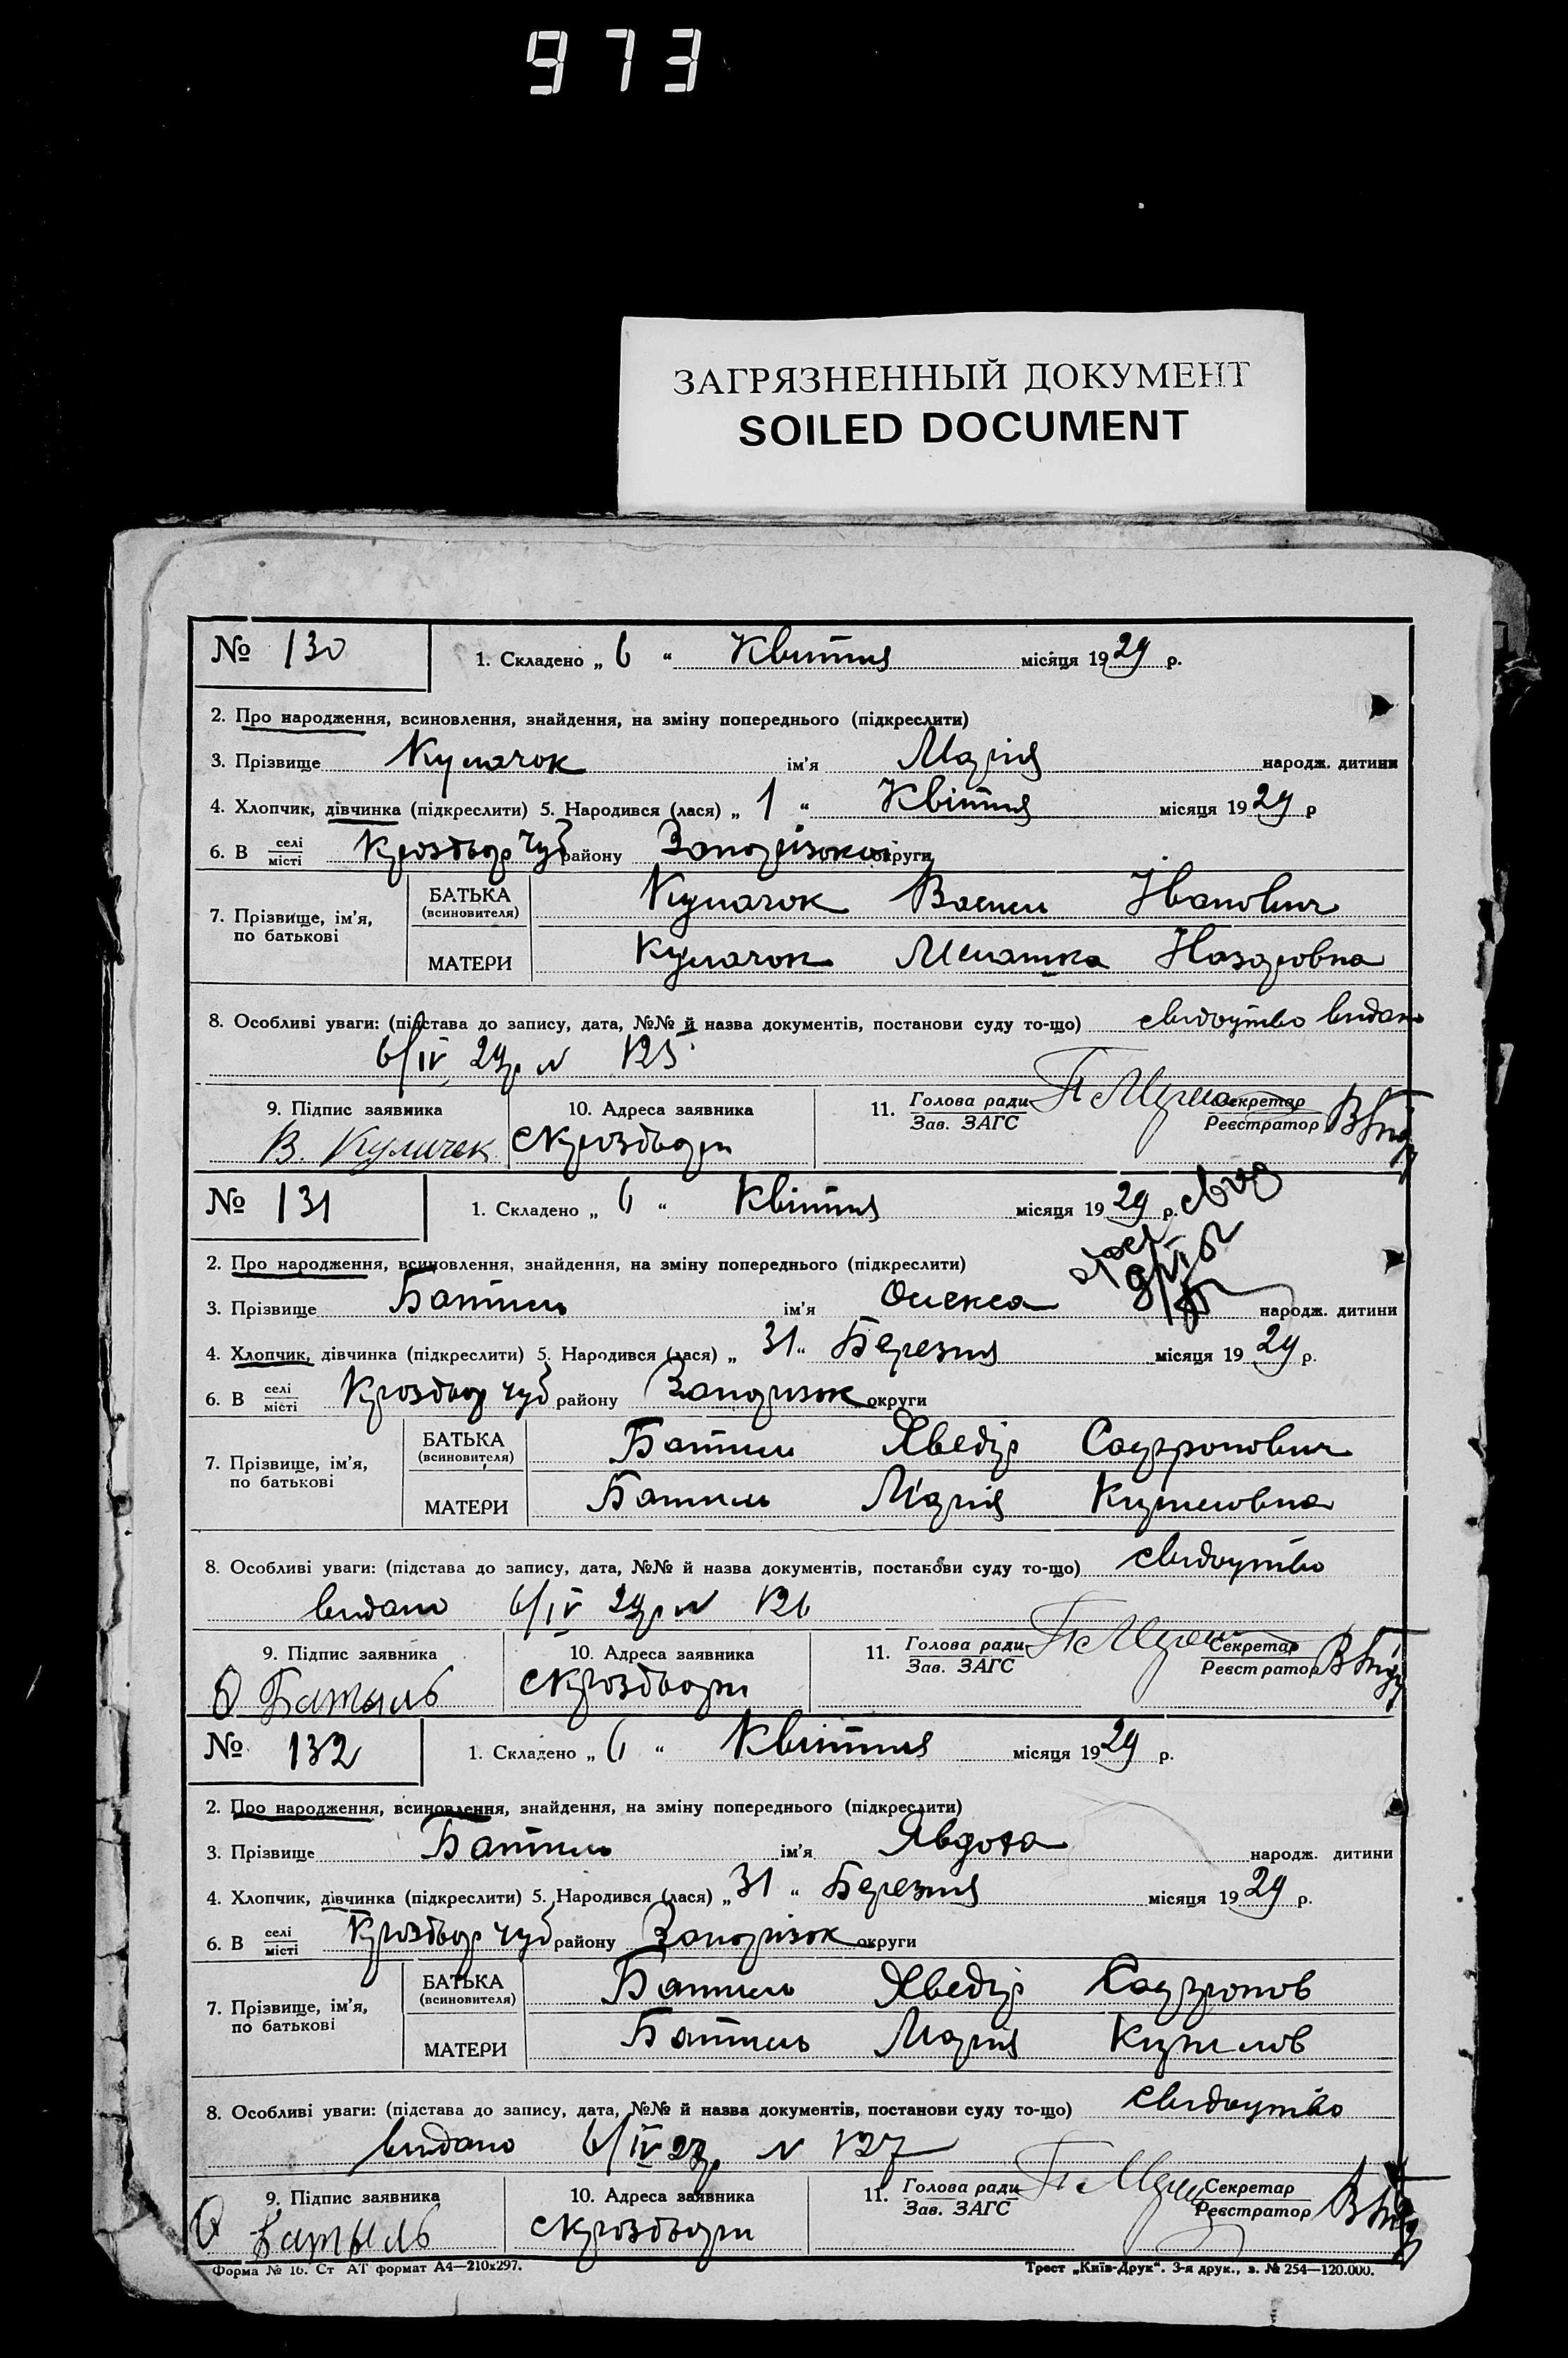 973
ЗАГРЯЗНЕННЫЙ ДОКУМЕНТ
SOILED DOCUMENT
№ 130
1. Складено „ 6 “ Квитня місяця 1929 р.
2. Про народження, всиновлення, знайдення, на зміну попереднього (підкреслити)
3. Прізвище Кулачок ім'я Марія народж. дитини
4. Хлопчик, дівчинка (підкреслити) 5. Народився (лася) „ 1 “ Квітня місяця 1929 р
6. В селі місті району округи
7. Прізвище, ім'я, по батькові
БАТЬКА (всиновителя) Кулачок Васил Іванович
МАТЕРИ Кулачок Мелашка Назаровна
8. Особливі уваги: (підстава до запису, дата, №№ й назва документів, постанови суду то-що) свидоцтво видано
6/IV 29р N 125
9. Підпис заявника 10. Адреса заявника 11. Голова ради Зав. ЗАГС Секретар Реєстратор
В. Куличек
№ 131
1. Складено „ 6 “ Квітня місяця 1929 р.
2. Про народження, всиновлення, знайдення, на зміну попереднього (підкреслити)
3. Прізвище Батиль ім'я Олекса народж. дитини
4. Хлопчик, дівчинка (підкреслити) 5. Народився (лася) „ 31 “ Березня місяця 1929 р.
6. В селі місті району округи
7. Прізвище, ім'я, по батькові
БАТЬКА (всиновителя) Батиль Хведір
МАТЕРИ Батиль Марія Кириловна
8. Особливі уваги: (підстава до запису, дата, №№ й назва документів, постанови суду то-що) свидоцтво
видано 6/IV 29р N 126
9. Підпис заявника 10. Адреса заявника 11. Голова ради Зав. ЗАГС Секретар Реєстратор
№ 132
1. Складено „ 6 “ Квитня місяця 1929 р.
2. Про народження, всиновлення, знайдення, на зміну попереднього (підкреслити)
3. Прізвище Батиль ім'я Явдоха народж. дитини
4. Хлопчик, дівчинка (підкреслити) 5. Народився (лася) „ 31 “ Березня місяця 1929 р.
6. В селі місті району округи
7. Прізвище, ім'я, по батькові
БАТЬКА (всиновителя) Батиль Хведір
МАТЕРИ Батиль Марія Кирилов
8. Особливі уваги: (підстава до запису, дата, №№ й назва документів, постанови суду то-що) свидоцтво
видано 6/IV 29р N 127
9. Підпис заявника 10. Адреса заявника 11. Голова ради Зав. ЗАГС Секретар Реєстратор
Форма № 16. Ст АТ формат А4—210х297. Трест „Київ-Друк“. 3-я друк., з. № 254—120.000.